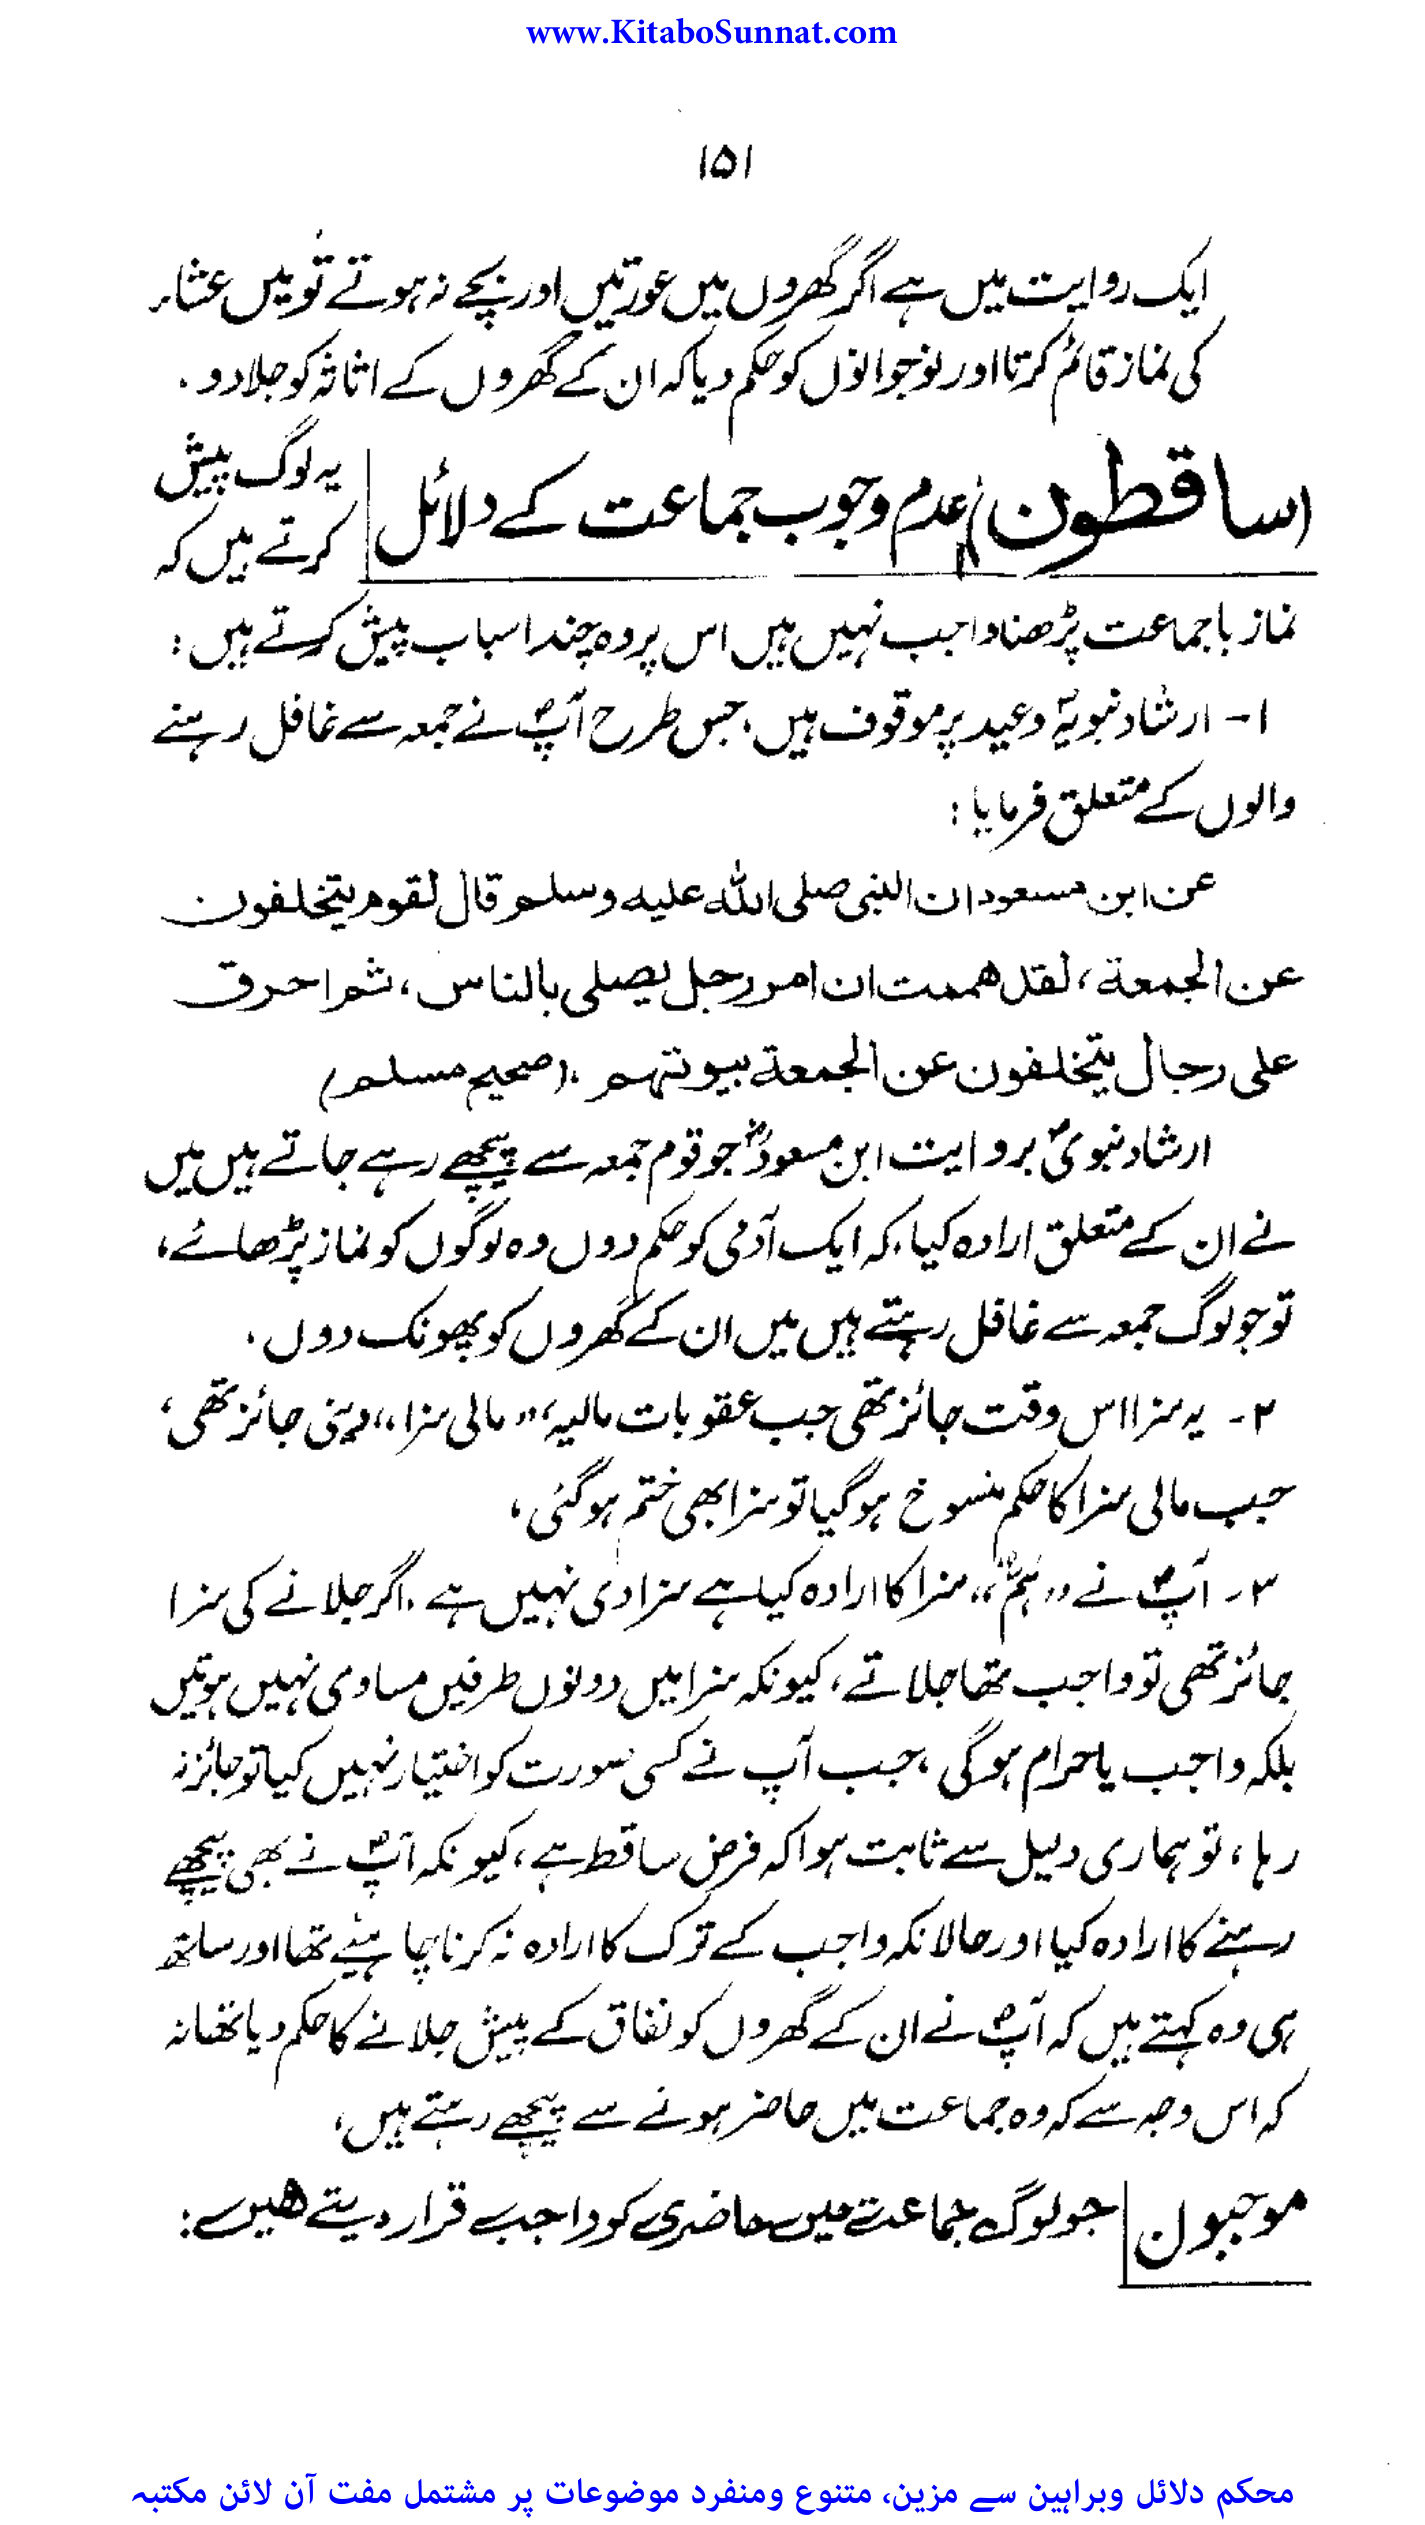 www.KitaboSunnat.com
۱۵۱
ایک روایت میں ہے اگر گھروں میں عورتیں اور بچے نہ ہوتے تو میں عشاء
کی نماز قائم کرتا اور نوجوانوں کو حکم دیا کہ ان کے گھروں کے اثاثہ کو جلا دو ۔
(ساقطون) عدم وجوب جماعت کے دلائل
یہ لوگ پیش
کرتے ہیں کہ
نماز باجماعت پڑھنا واجب نہیں ہیں اس پر وہ چند اسباب پیش کرتے ہیں :
۱- ارشاد نبویہؐ وعید پر موقوف ہیں ، جس طرح آپؐ نے جمعہ سے غافل رہنے
والوں کے متعلق فرمایا :
عن ابن مسعود ان النبی صلی الله علیہ وسلم قال لقوم یتخلفون
عن الجمعة ، لقد هممت ان امر رجل یصلی بالناس ، ثم احرق
علی رجال یتخلفون عن الجمعة بیوتہم ۔ (صحیح مسلم)
ارشاد نبویؐ بروایت ابن مسعودؓ جو قوم جمعہ سے پیچھے رہے جاتے ہیں میں
نے ان کے متعلق ارادہ کیا ، کہ ایک آدمی کو حکم دوں وہ لوگوں کو نماز پڑھائے ،
تو جو لوگ جمعہ سے غافل رہتے ہیں میں ان کے گھروں کو پھونک دوں ۔
۲- یہ سزا اس وقت جائز تھی جب عقوبات مالیہ ، ”مالی سزا“ دینی جائز تھی ،
جب مالی سزا کا حکم منسوخ ہو گیا تو سزا بھی ختم ہو گئی ،
۳- آپؐ نے ”ہَمَّ“ سزا کا ارادہ کیا ہے سزا دی نہیں ہے ۔ اگر جلانے کی سزا
جائز تھی تو واجب تھا جلاتے ، کیونکہ سزا میں دونوں طرفیں مساوی نہیں ہوتیں
بلکہ واجب یا حرام ہو گی ، جب آپ نے کسی صورت کو اختیار نہیں کیا تو جائز نہ
رہا ، تو ہماری دلیل سے ثابت ہوا کہ فرض ساقط ہے ، کیونکہ آپؐ نے بھی پیچھے
رہنے کا ارادہ کیا اور حالانکہ واجب کے ترک کا ارادہ نہ کرنا چاہیئے تھا اور ساتھ
ہی وہ کہتے ہیں کہ آپؐ نے ان کے گھروں کو نفاق کے پیش جلانے کا حکم دیا تھا نہ
کہ اس وجہ سے کہ وہ جماعت میں حاضر ہونے سے پیچھے رہتے ہیں ،
موجبون جو لوگ جماعت میں حاضری کو واجب قرار دیتے ہیں :
محکم دلائل وبراہین سے مزین، متنوع ومنفرد موضوعات پر مشتمل مفت آن لائن مکتبہ